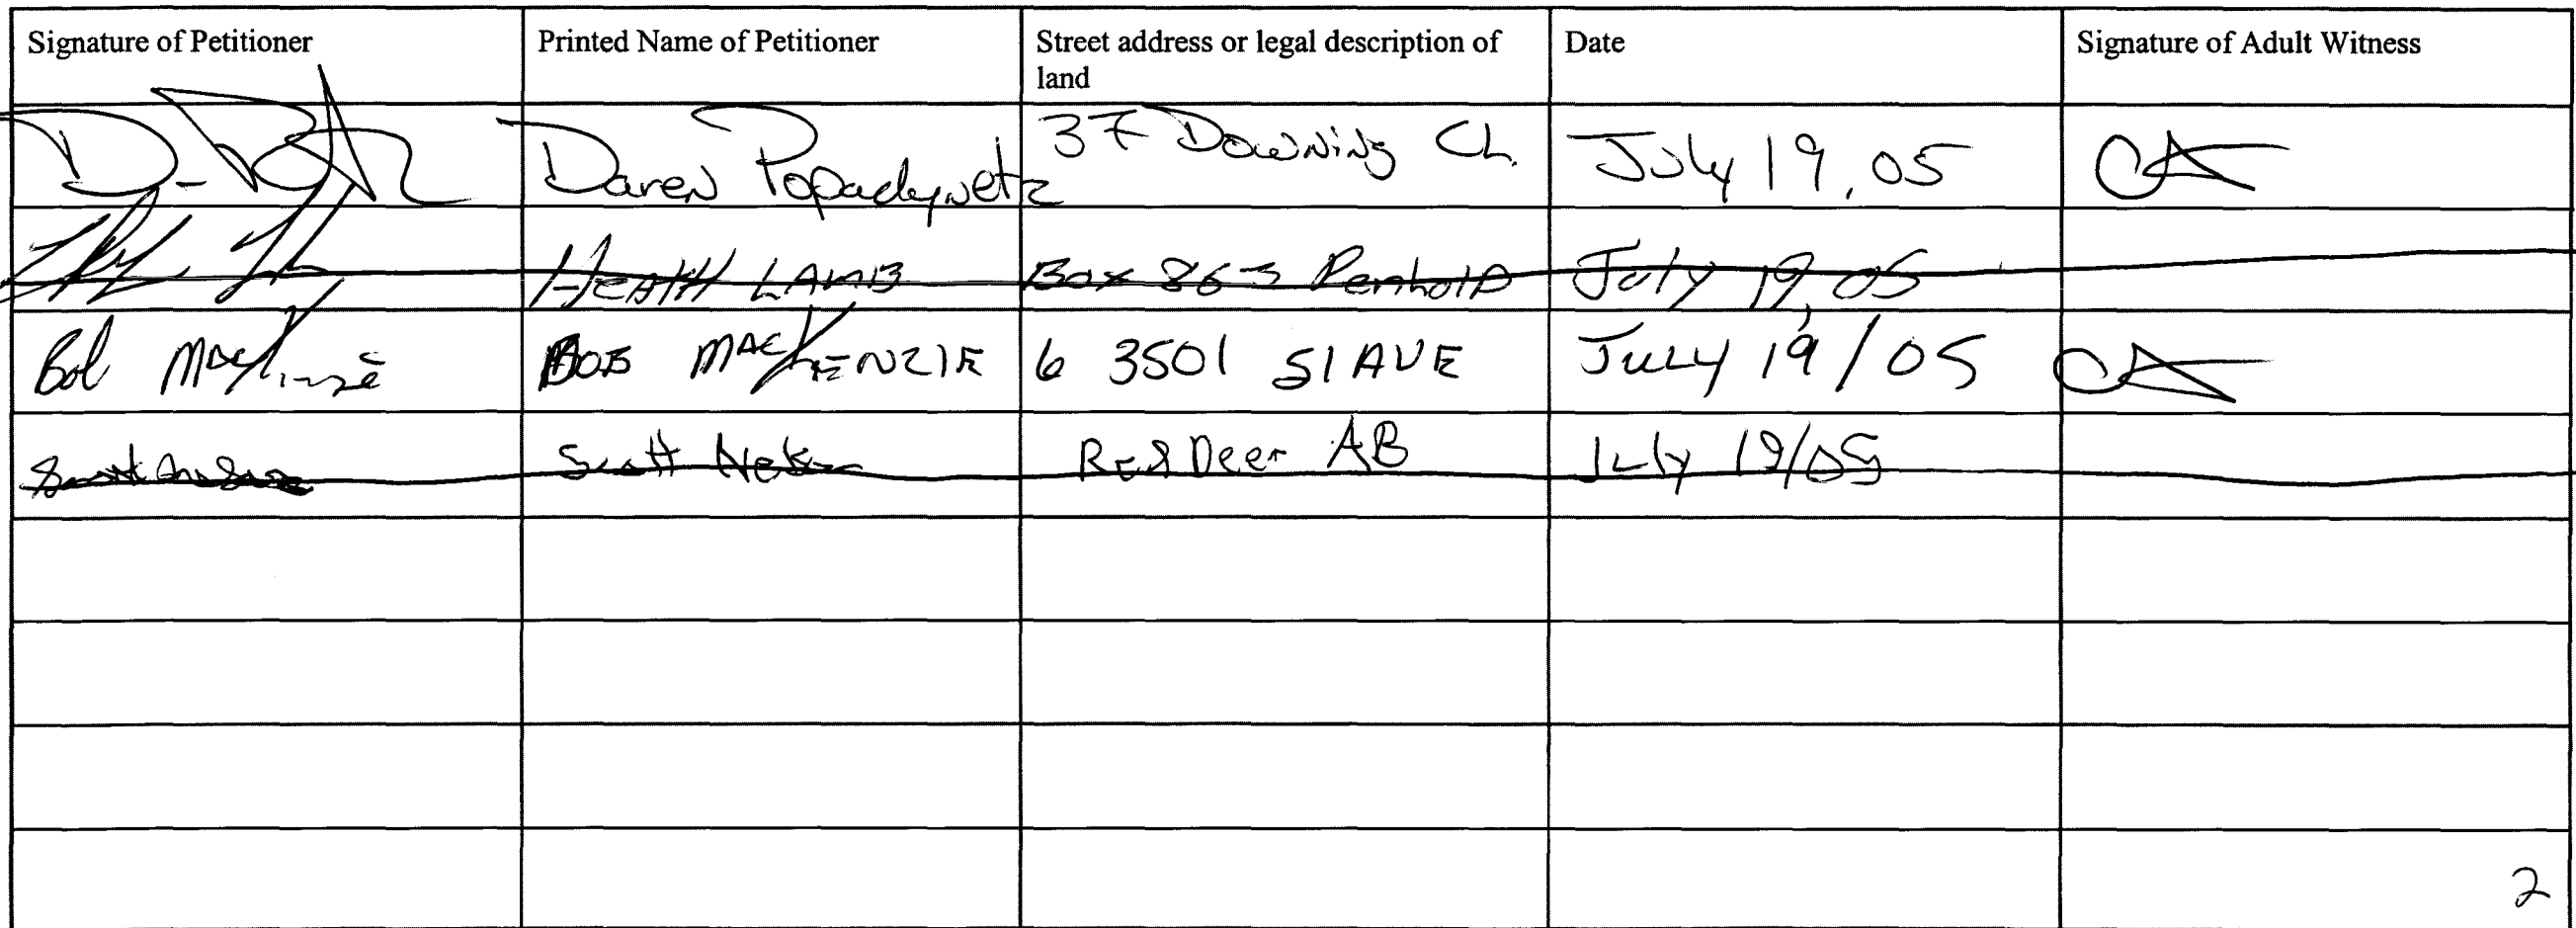 Signature of Petitioner
Printed Name of Petitioner
Street address or legal description of
land
Date
Signature of Adult Witness
Daren Popadynetz
37 Downing Cl.
July 19, 05
Heath LAMB
Box 863 Penhold
July 19, 05
Bob MacKenzie
BOB MACKENZIE
6 3501 51 AVE
July 19/05
Scott
Red Deer AB
July 19/05
2